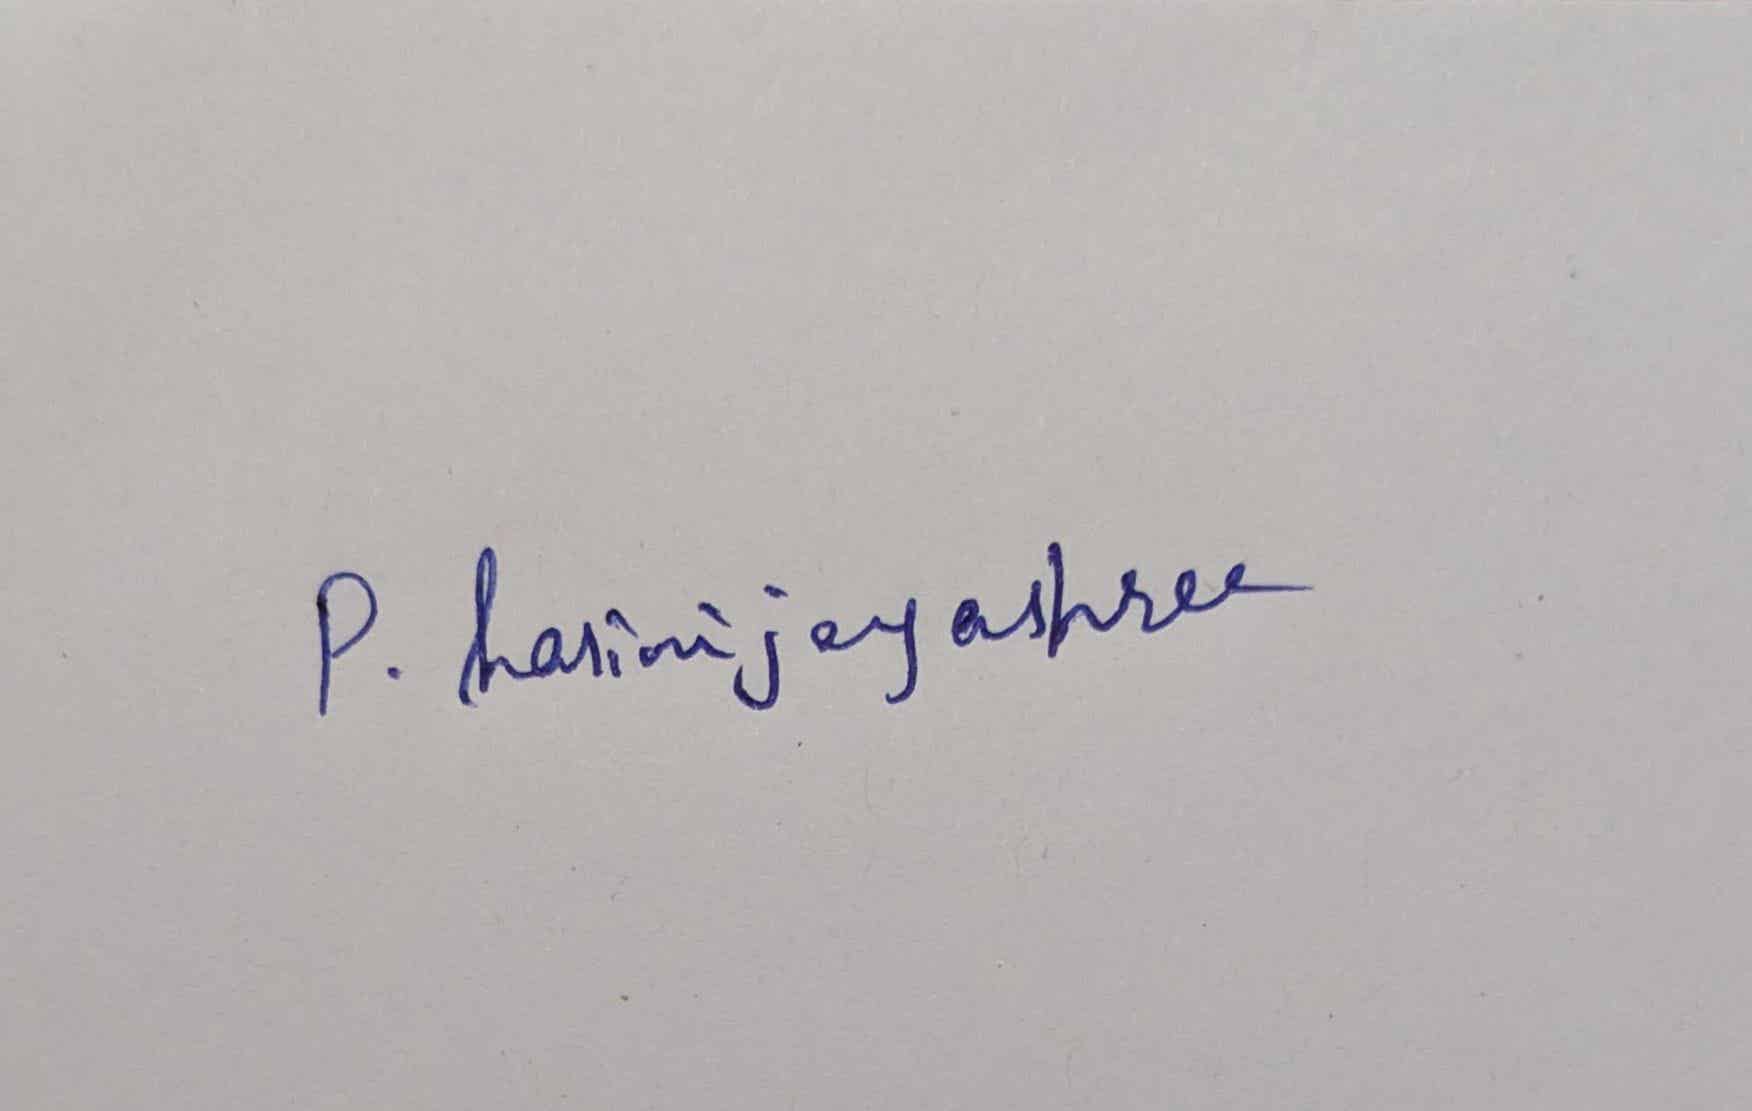 P. harinijayashree